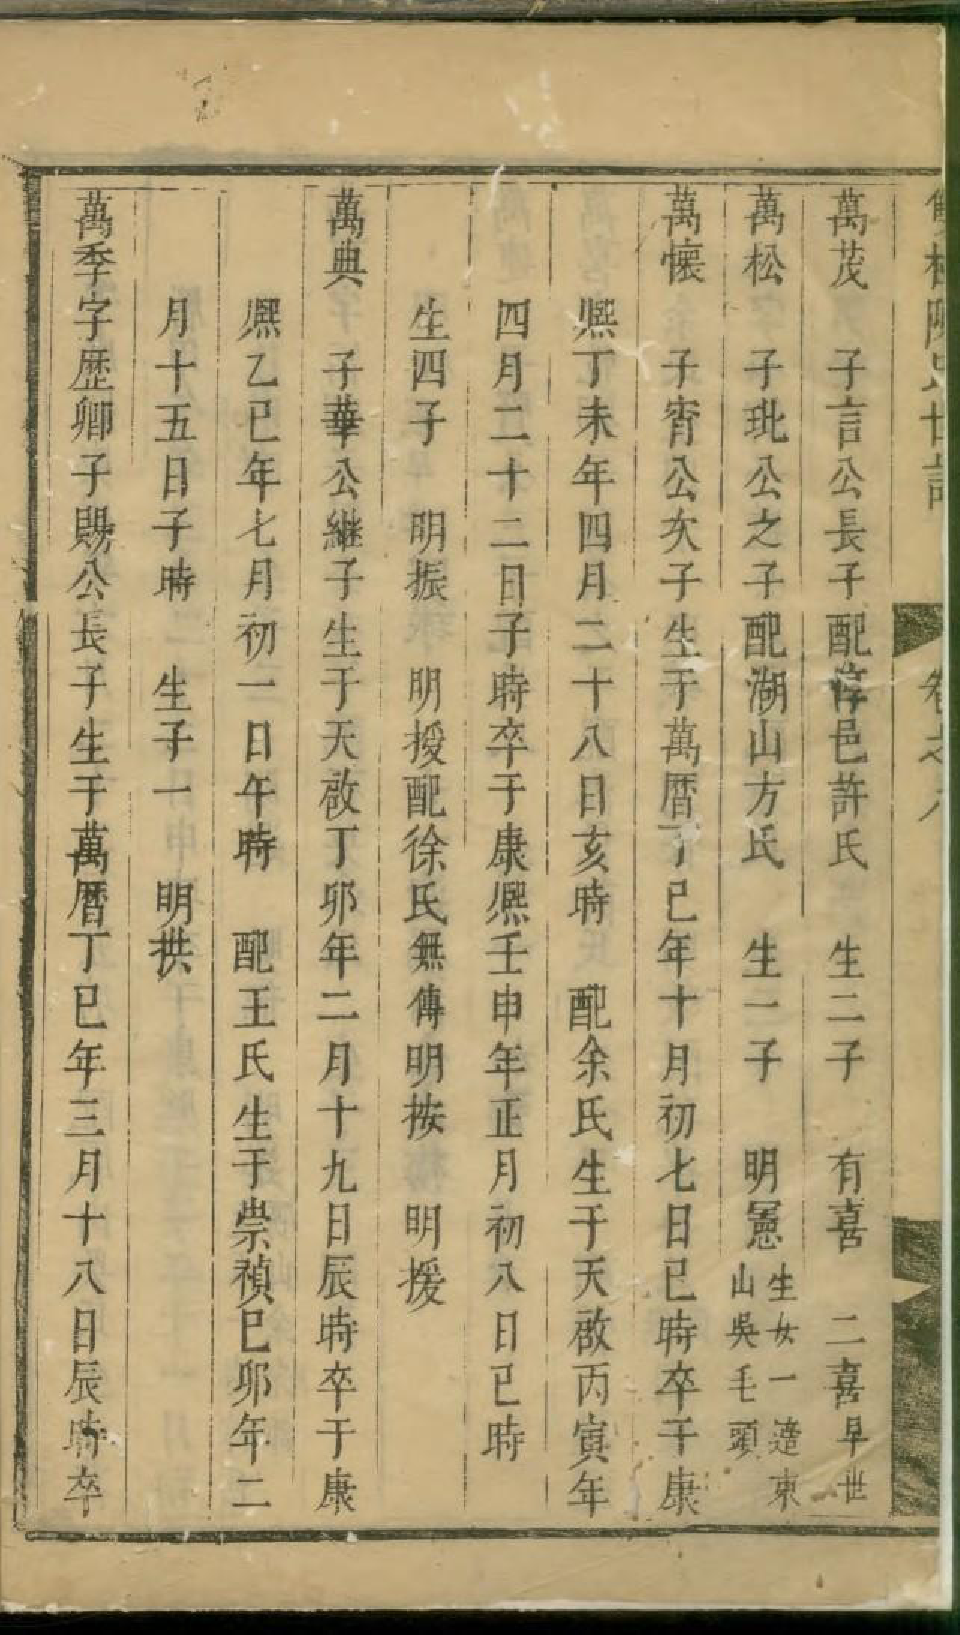 萬茂　子言公長子配淳邑許氏　生二子　有喜　二喜早世
萬松　子玭公之子配湖山方氏　生一子　明憲生女一適東山吳毛頭
萬懷　子宵公次子生于萬曆丁巳年十月初七日巳時卒于康
熙丁未年四月二十八日亥時　配余氏生于天啟丙寅年
四月二十二日子時卒于康熙壬申年正月初八日巳時
生四子　明振　明授配徐氏無傳明按　明援
萬典　子華公継子生于天啟丁卯年二月十九日辰時卒于康
熙乙巳年七月初一日午時　配王氏生于崇禎己卯年二
月十五日子時　生子一　明拱
萬季字歷卿子賜公長子生于萬曆丁巳年三月十八日辰時卒